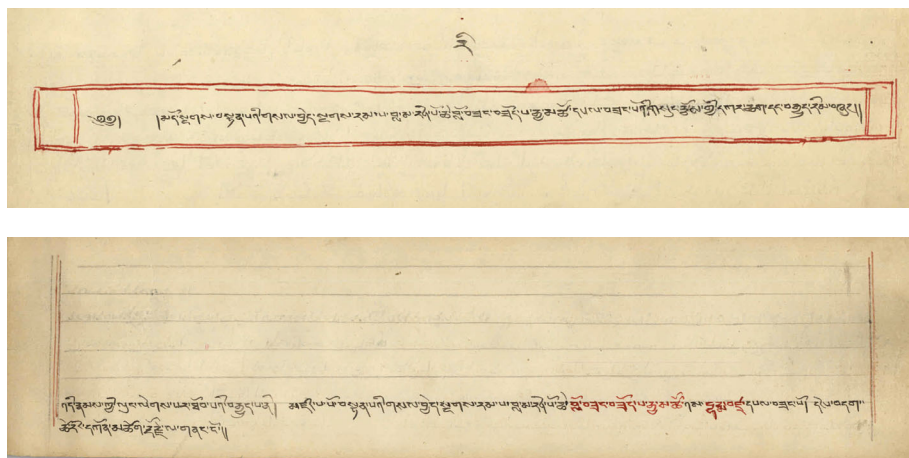 ༄༅། །མདོ་སྔགས་བསྟན་པའི་གསལ་བྱེད་སྔགས་རམས་པ་བླ་མ་རིན་པོ་ཆེ་བློ་བཟང་བཟོད་པ་རྒྱ་མཚོ་དཔལ་བཟང་པོའི་གསུང་རྩོམ་གྱི་དཀར་ཆག་དང་བརྒྱུད་རིམ་བཞུགས།།
འདི་རྣམས་ཀྱི་ལུང་ལེགས་པར་ཐོབ་པའི་བརྒྱུད་པ་ནི། མཛད་པ་པོ་བསྟན་པའི་གསལ་བྱེད་སྔགས་རམས་པ་བླ་མ་རིན་པོ་ཆེ་བློ་བཟང་བཟོད་པ་རྒྱ་མཚོ་ནས་དྷརྨ་བཛྲ་དཔལ་བཟང་པོ། དེས་བདག་
ཚེ་རིང་དཀོན་མཆོག་རྡོ་རྗེ་ལ་གནང་ངོ་།།